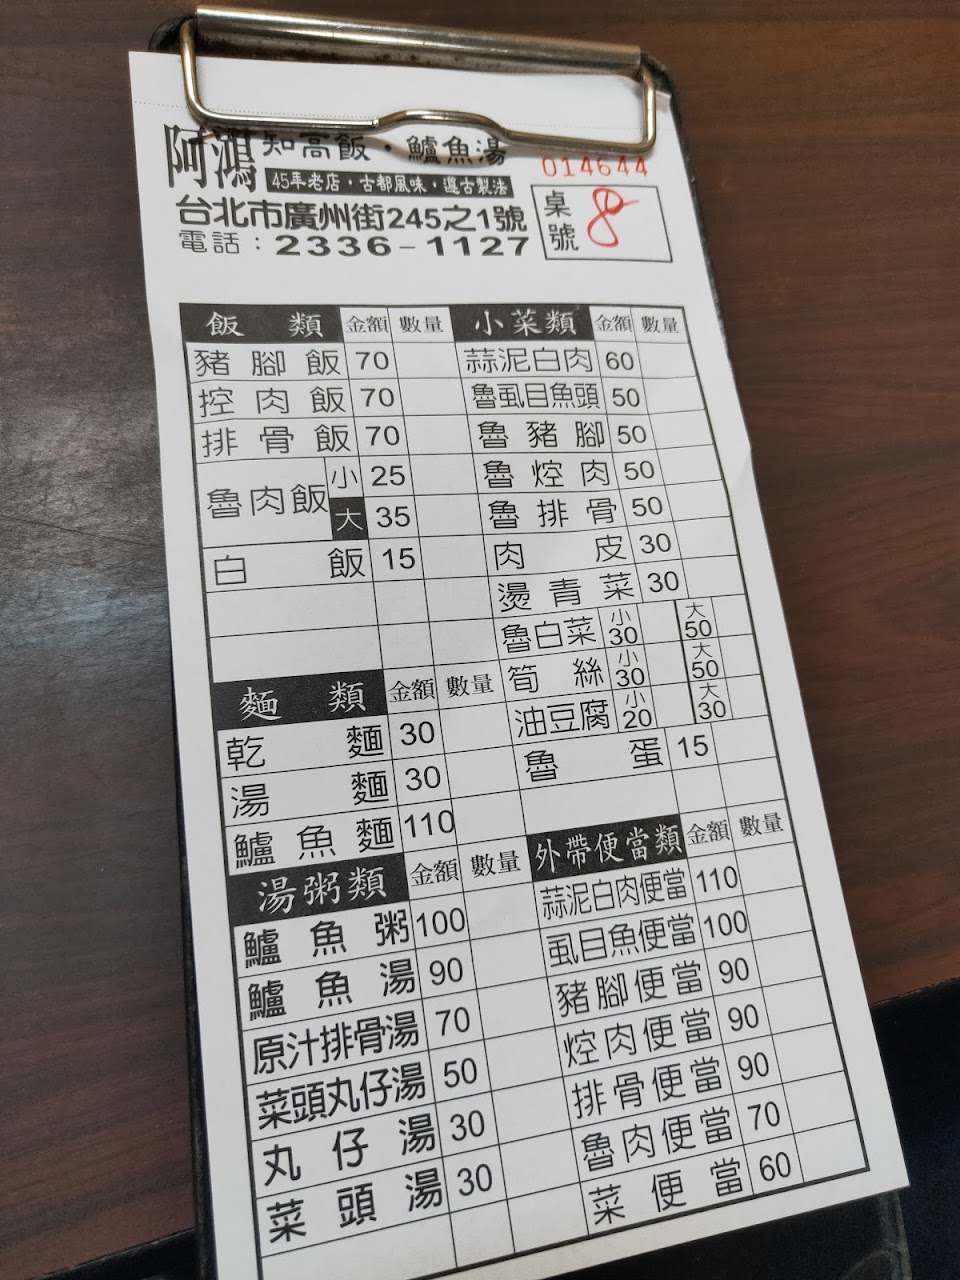 阿鴻 知高飯・鱸魚湯
014644
45年老店・古都風味・遵古製法
台北市廣州街245之1號
電話：2336-1127
桌號 8
飯類 金額 數量
豬腳飯 70
控肉飯 70
排骨飯 70
魯肉飯 小 25
大 35
白飯 15
麵類 金額 數量
乾麵 30
湯麵 30
鱸魚麵 110
湯粥類 金額 數量
鱸魚粥 100
鱸魚湯 90
原汁排骨湯 70
菜頭丸仔湯 50
丸仔湯 30
菜頭湯 30
小菜類 金額 數量
蒜泥白肉 60
魯虱目魚頭 50
魯豬腳 50
魯焢肉 50
魯排骨 50
肉皮 30
燙青菜 30
魯白菜 小 30 大 50
筍絲 小 30 大 50
油豆腐 小 20 大 30
魯蛋 15
外帶便當類 金額 數量
蒜泥白肉便當 110
虱目魚便當 100
豬腳便當 90
焢肉便當 90
排骨便當 90
魯肉便當 70
菜便當 60